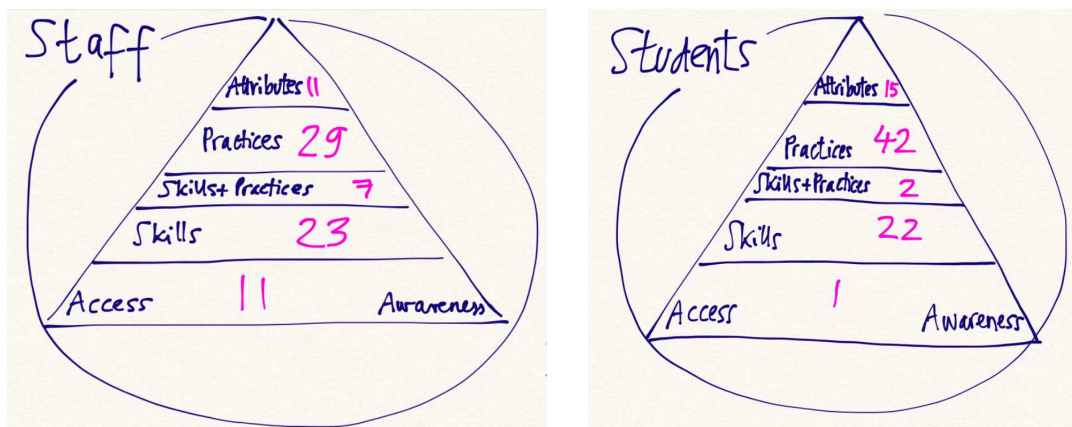 Staff
Attributes 11
Practices 29
Skills+Practices 7
Skills 23
11
Access Awareness
Students
Attributes 15
Practices 42
Skills+Practices 2
Skills 22
1
Access Awareness